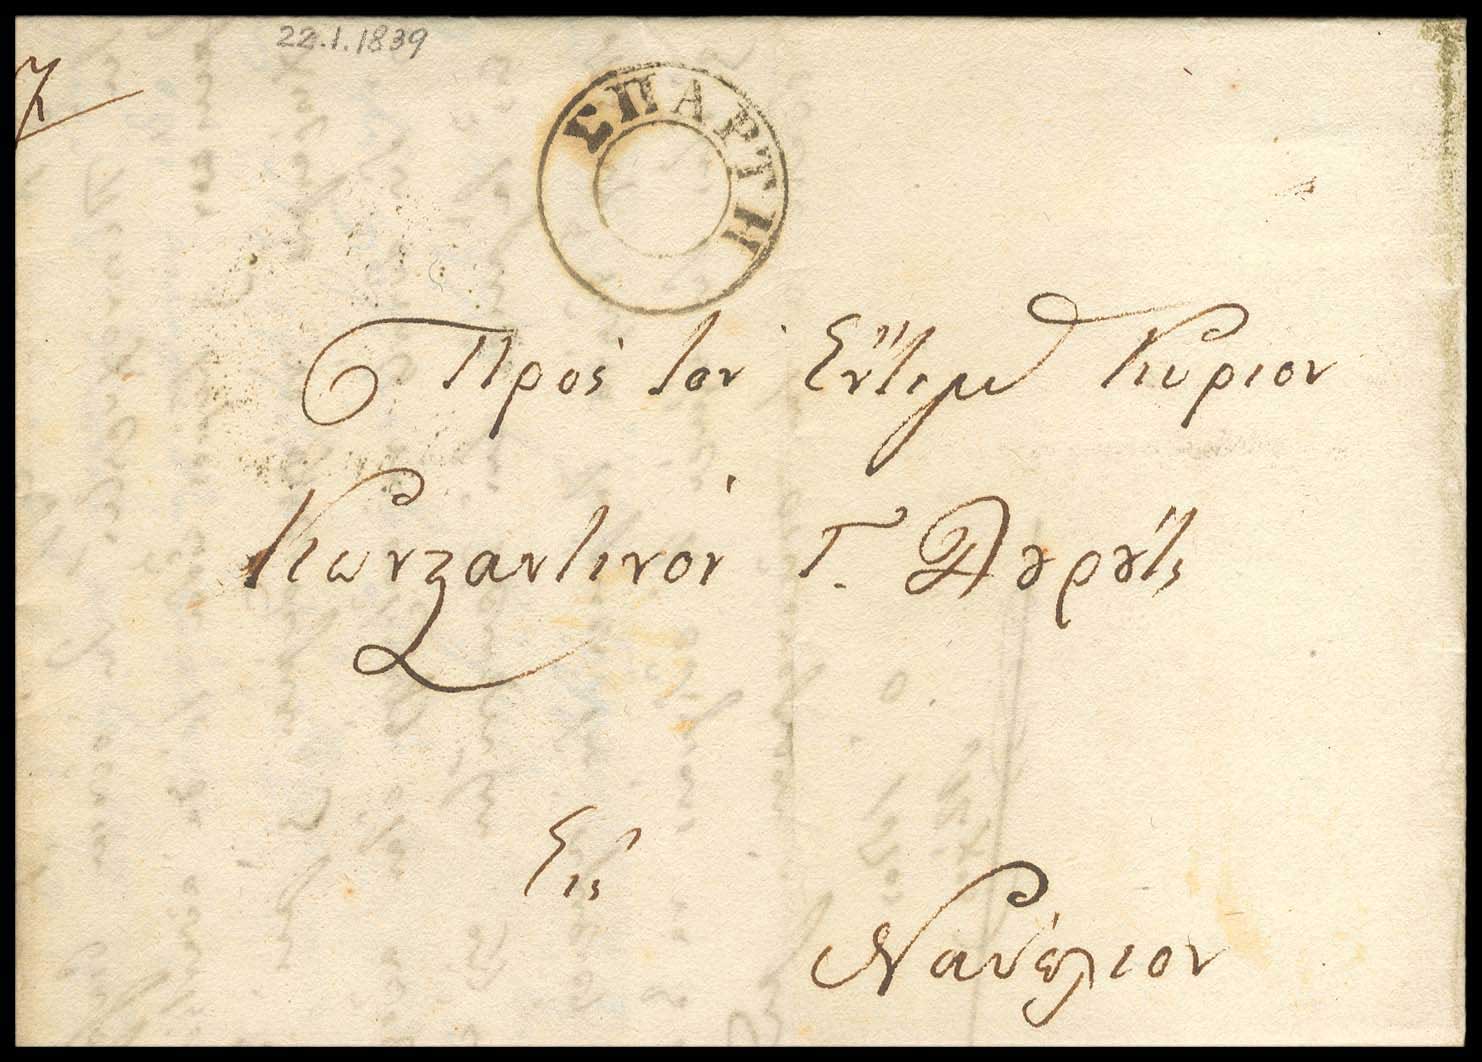 22.1.1839
ΣΠΑΡΤΗ
Πρὸς τον Ἐντιμ Κύριον
Κωνϛαντινον Γ.
Εἰς
Ναύπλιον